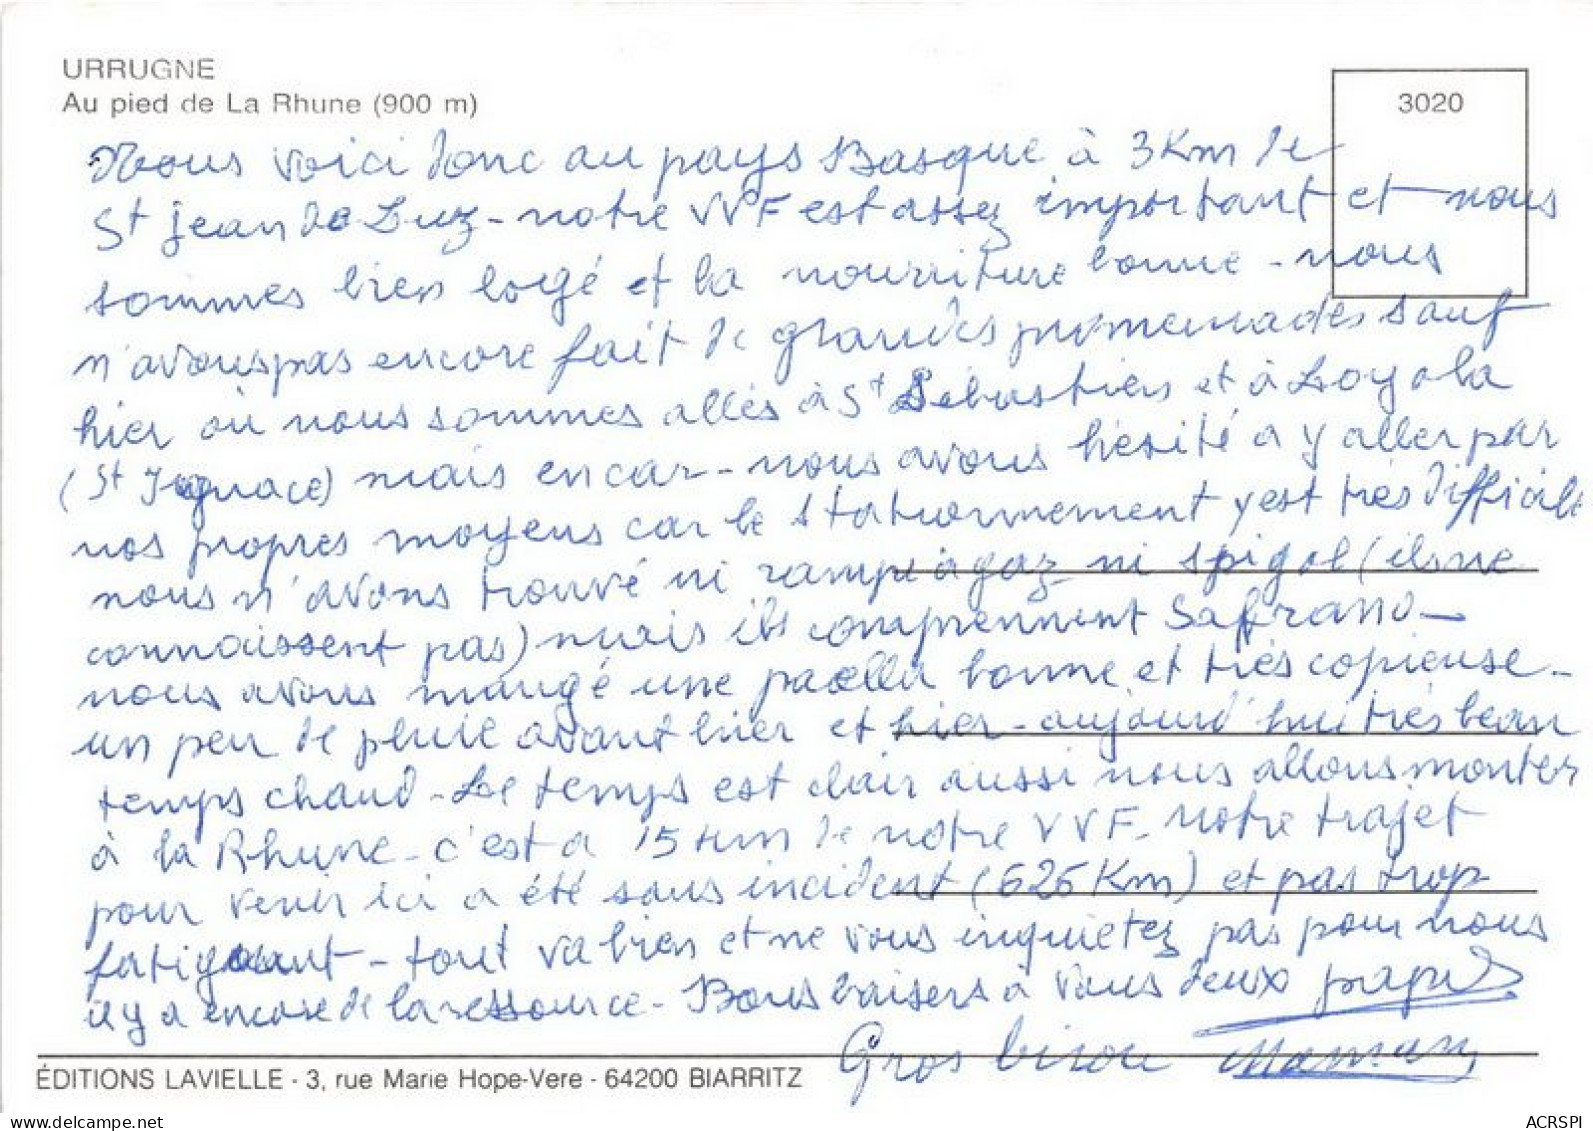 URRUGNE
Au pied de La Rhune (900 m)
3020
Nous voici donc au pays Basque à 3 Km de
St jean de Luz - notre VVF est assez important et nous
sommes bien logé et la nourriture bonne - nous
n'avons pas encore fait de grandes promenades sauf
hier où nous sommes allés à St Sébastien et à Loyola
(St Ignace) mais en car - nous avons hésité a y aller par
nos propres moyens car le stationnement y est très difficile
nous n'avons trouvé ni rampe à gaz ni spigol (ils ne
connaissent pas) mais ils comprennent Saffrano -
nous avons mangé une paella bonne et très copieuse -
un peu de pluie avant hier et hier - aujourd'hui très beau
temps chaud - Le temps est clair aussi nous allons monter
à la Rhune - c'est a 15 Km de notre VVF - notre trajet
pour venir ici a été sans incident (626 Km) et pas trop
fatiguant - tout va bien et ne vous inquietez pas pour nous
il y a encore de la ressource - Bons baisers à vous deux papa
Gros bisou Maman
ÉDITIONS LAVIELLE - 3, rue Marie Hope-Vere - 64200 BIARRITZ
delcampe.net
ACRSPI